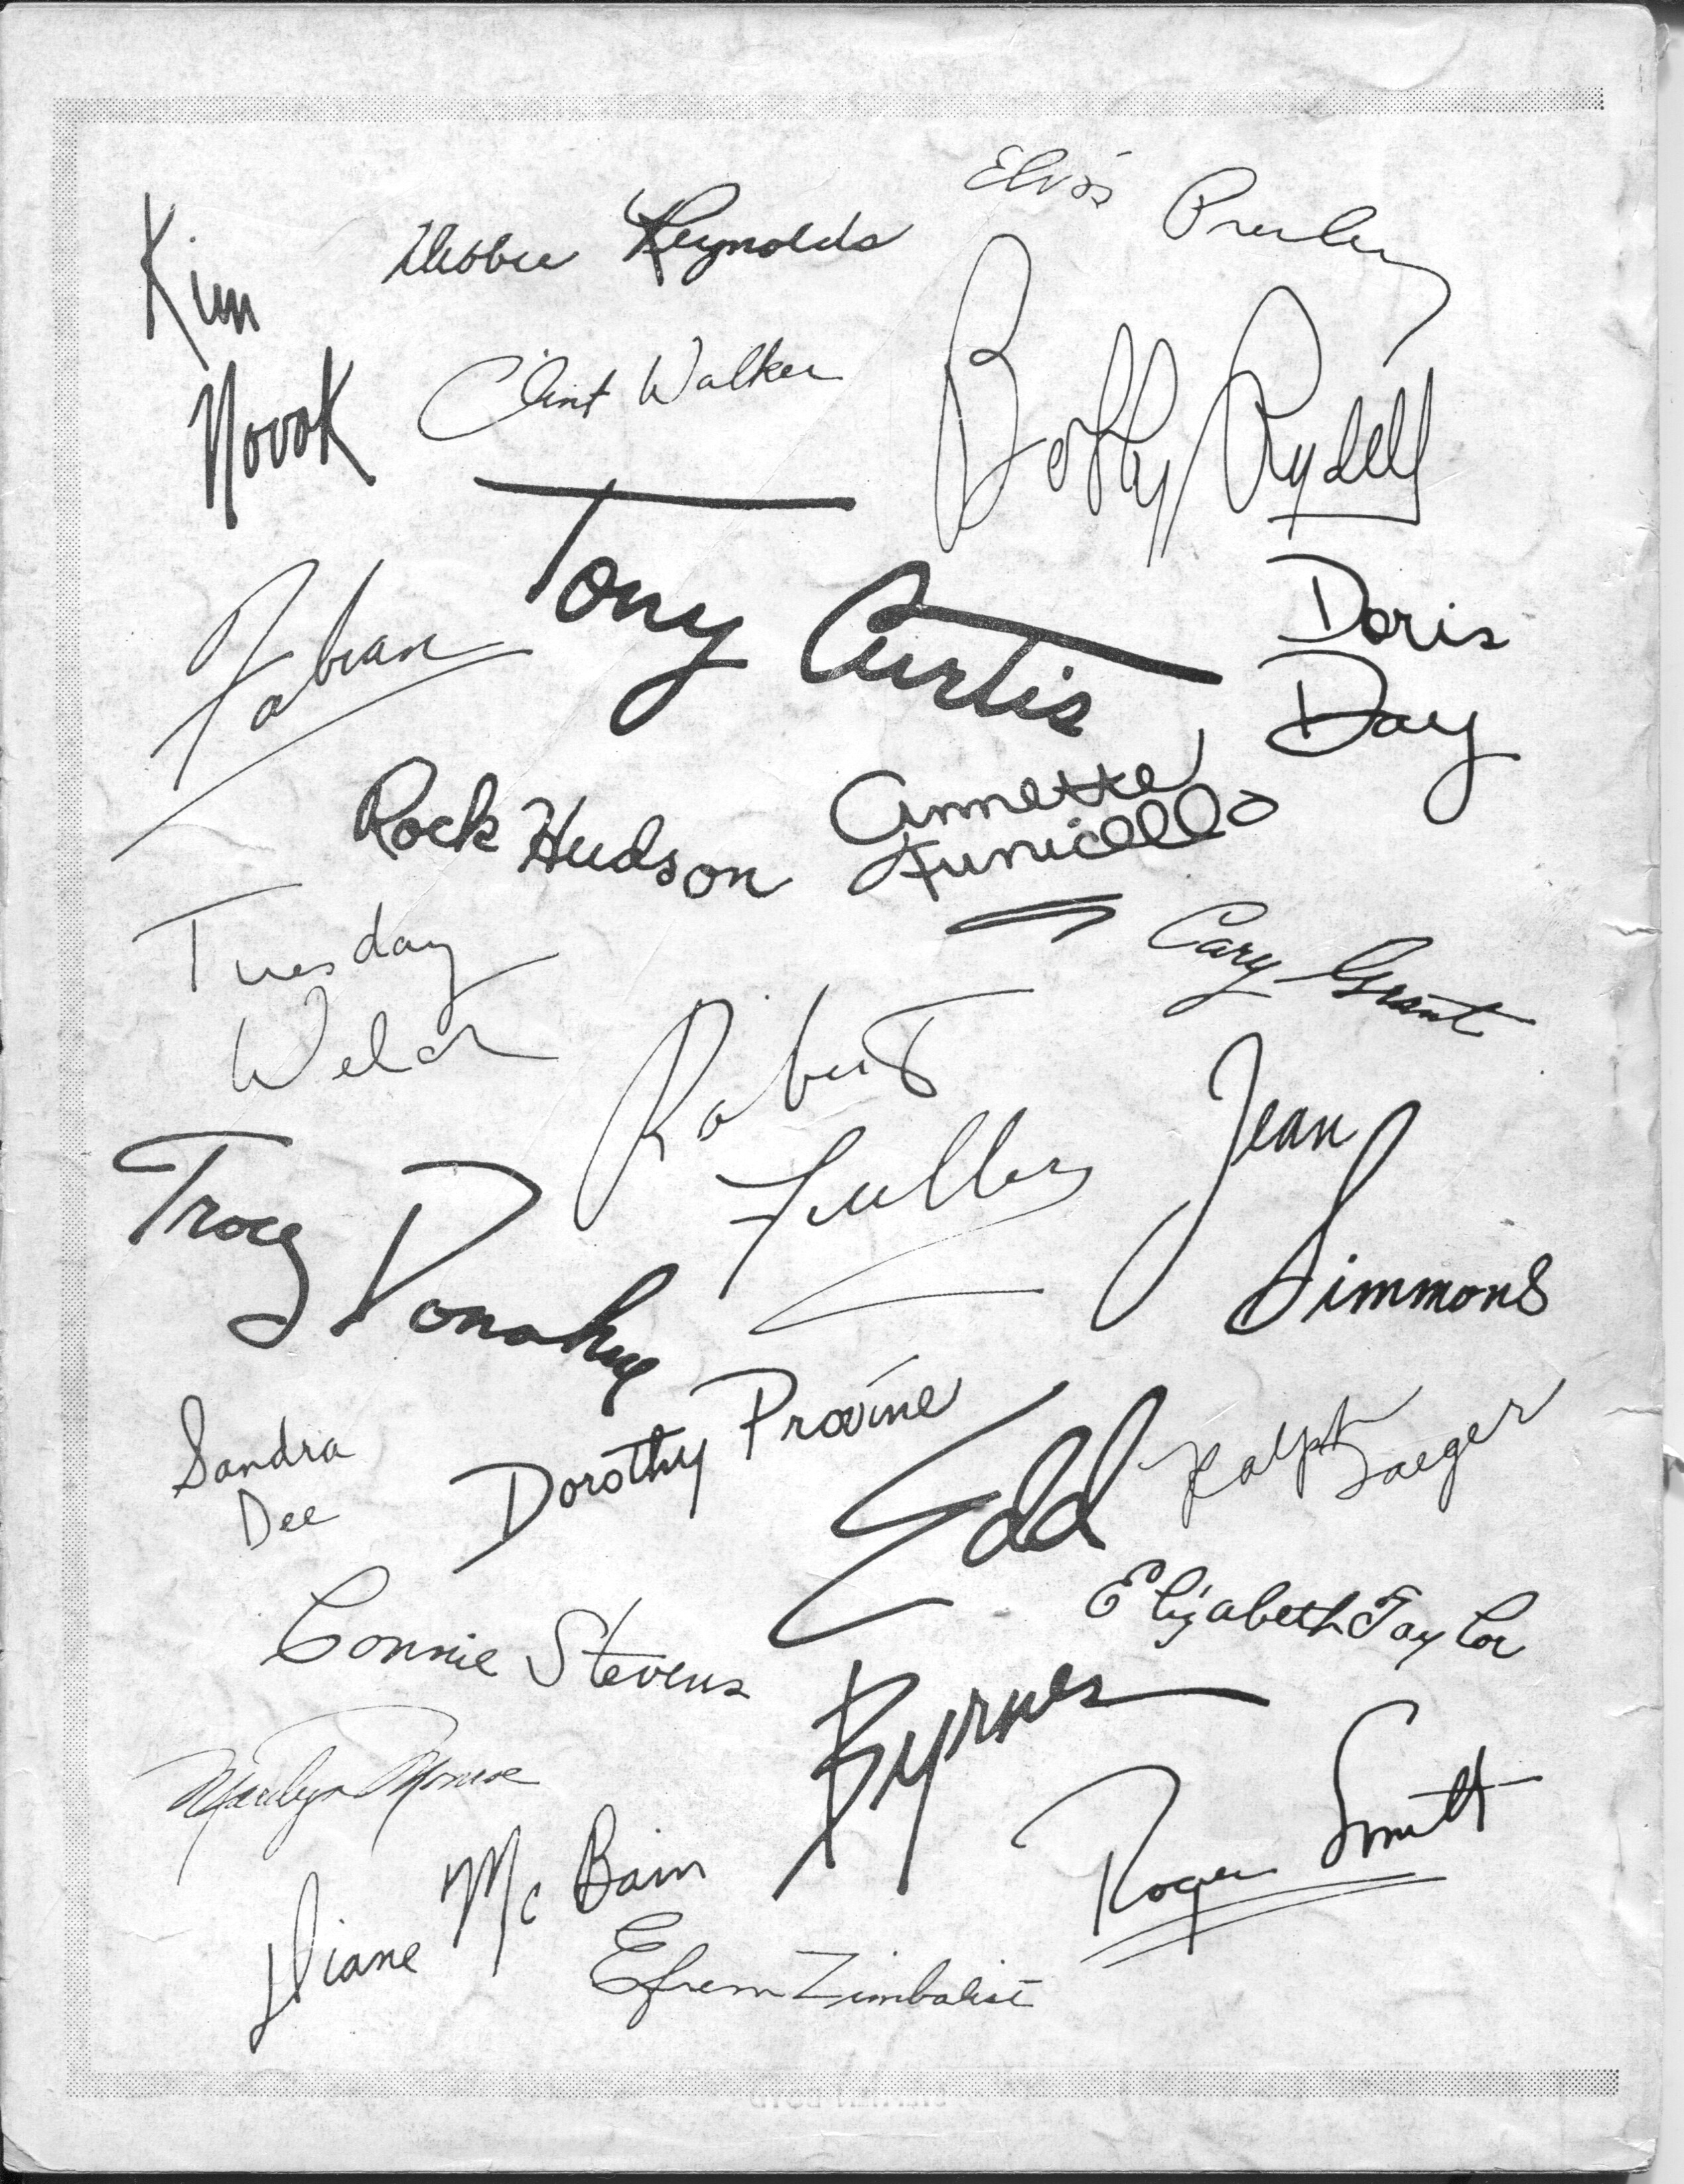 Elvis Presley
Kim
Novak
Debbie Reynolds
Clint Walker
Bobby Rydell
Tony Curtis
Doris
Day
Fabian
Rock Hudson
Annette
Funicello
Cary Grant
Tuesday
Weld
Robert
Fuller
Jean
Simmons
Troy Donahue
Sandra
Dee
Dorothy Provine
Edd
Byrnes
Ralph
Jaeger
Elizabeth Taylor
Connie Stevens
Marilyn Monroe
Roger Smith
Diane McBain
Efrem Zimbalist